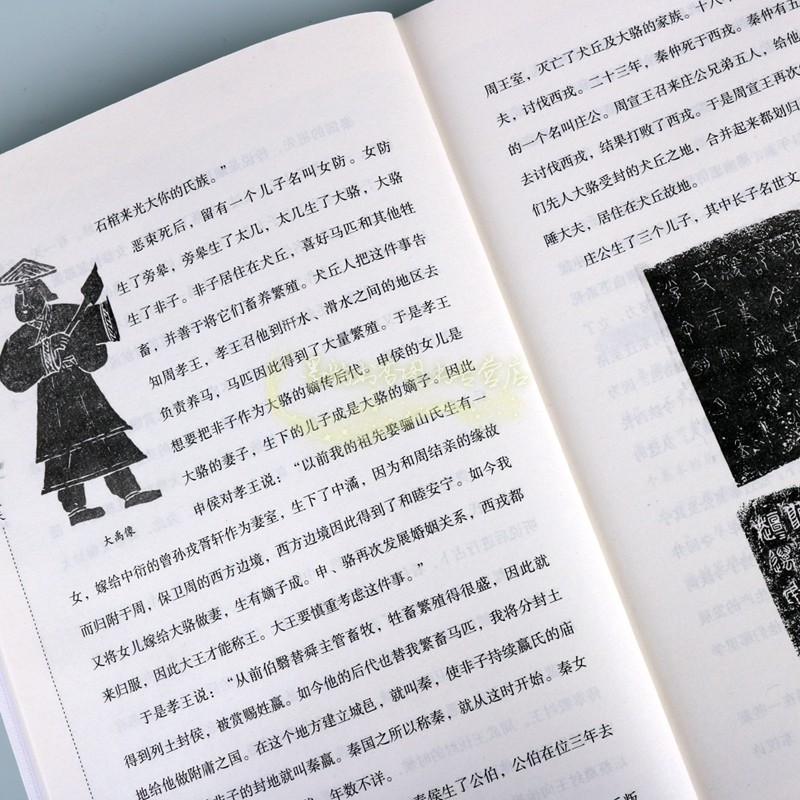 石棺来光大你的氏族。”
恶束死后，留有一个儿子名叫女防。女防
生了旁皋，旁皋生了太几，太几生了大骆，大骆
生了非子。非子居住在犬丘，喜好马匹和其他牲
畜，并善于将它们畜养繁殖。犬丘人把这件事告
知周孝王，孝王召他到汧水、滑水之间的地区去
负责养马，马匹因此得到了大量繁殖。于是孝王
想要把非子作为大骆的嫡传后代。申侯的女儿是
大骆的妻子，生下的儿子成是大骆的嫡子。因此
申侯对孝王说：“以前我的祖先娶骊山氏生有一
女，嫁给中衍的曾孙戎胥轩作为妻室，生下了中潏，因为和周结亲的缘故
而归附于周，保卫周的西方边境，西方边境因此得到了和睦安宁。如今我
又将女儿嫁给大骆做妻，生有嫡子成。申、骆再次发展婚姻关系，西戎都
来归服，因此大王才能称王。大王要慎重考虑这件事。”
于是孝王说：“从前伯翳替舜主管畜牧，牲畜繁殖得很盛，因此就
得到列土封侯，被赏赐姓嬴。如今他的后代也替我繁畜马匹，我将分封土
地给他做附庸之国。在这个地方建立城邑，就叫秦，使非子持续嬴氏的庙
非子的封地就叫秦嬴。秦国之所以称秦，就从这时开始。秦女
年数不详。
秦侯生了公伯，公伯在位三年去
大禹像
周王室，灭亡了犬丘及大骆的家族。十八
夫，讨伐西戎。二十三年，秦仲死于西戎。秦仲有五
的一个名叫庄公。周宣王召来庄公兄弟五人，给他
去讨伐西戎，结果打败了西戎。于是周宣王再次
们先人大骆受封的犬丘之地，合并起来都划归
陲大夫，居住在犬丘故地。
庄公生了三个儿子，其中长子名世文